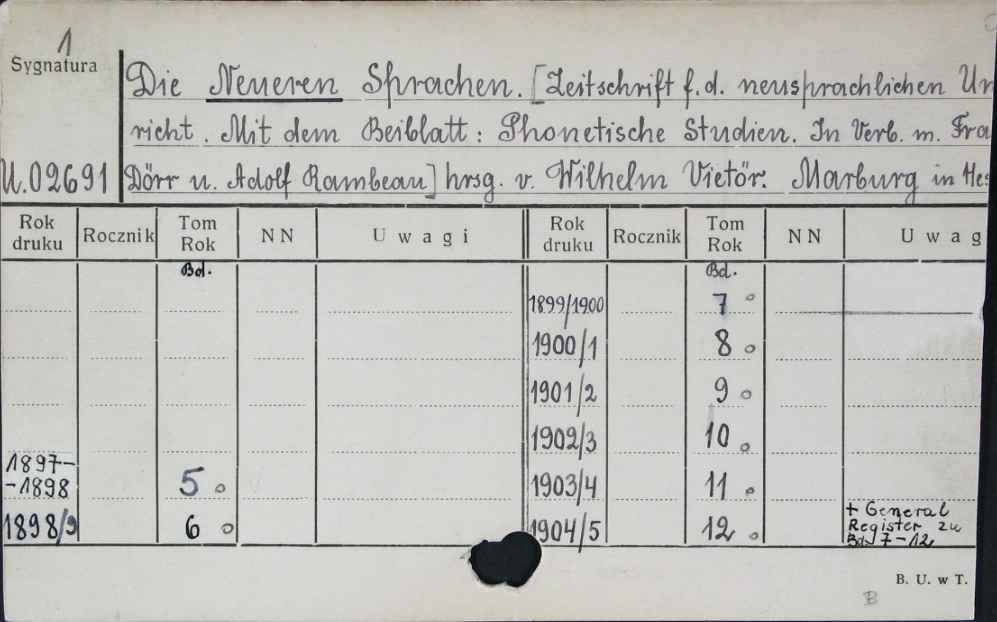 1
Sygnatura
Die Neueren Sprachen. [Zeitschrift f. d. neusprachlichen Un
richt. Mit dem Beiblatt: Phonetische Studien. In Verb. m. Fra
U.02691 Dörr u. Adolf Rambeau] hrsg. v. Wilhelm Vietör. Marburg in Hes
Rok druku Rocznik Tom Rok NN Uwagi Rok druku Rocznik Tom Rok NN Uwag
Bd. Bd.
1899/1900 7 o
1900/1 8 o
1901/2 9 o
1902/3 10 o
1897-
-1898 5 o 1903/4 11 o
1898/9 6 o 1904/5 12 o + General
Register zu
Bd 7-12
B. U. w T.
B